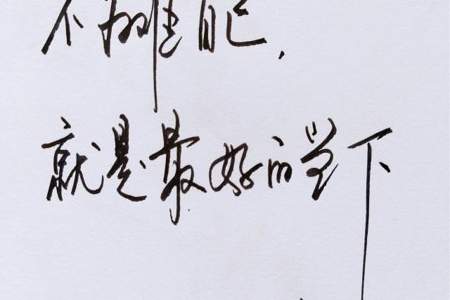 不自己,
就是最好的当下